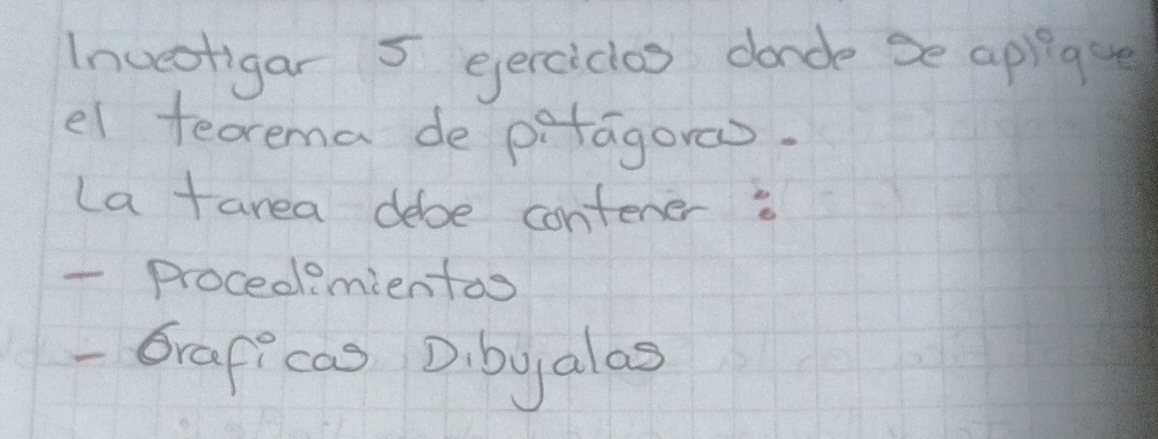 Investigar 5 ejercicios donde se aplique
el teorema de pitágoras.
La tarea debe contener :
- Procedimientos
- Graficas Dibujalas